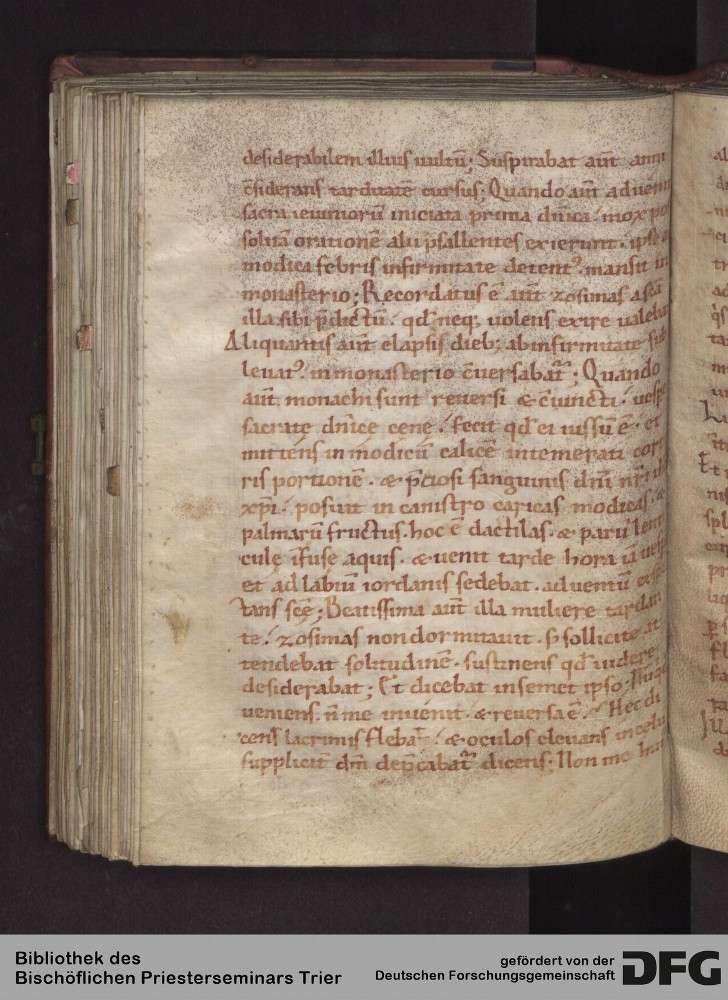 desiderabilem illius uultū; Suspirabat aūt anni
c̄siderans tarditatē cursus; Quando aūt aduenit
sacra ieiuniorū iniciata prima dn̄ica. mox post
solitā orationē alii psallentes exierunt. ipse
modica febris infirmitate detent᾿. mansit in
monasterio; Recordatus ē aūt zosimas a sc̄a
illa sibi p̄dictū. qđ neq; uolens exire ualebit
Aliquantis aūt elapsis dieb; ab infirmitate sub
leuat᾿. in monasterio c̄uersabat᾿; Quando
aūt monachi sunt reuersi & c̄uincti. uespe
sacrate dn̄ice cene. fecit qđ ei iussū ē. et
mittens in modicū calicē intemerati corpo
ris portionē. & p̄ciosi sanguinis dn̄i nr̄i
xp̄i. posuit in canistro caricas modicas. &
palmarū fructus. hoc ē dactilas. & parū lenti
culę īfuse aquis. & uenit tarde hora iā uesp
et ad labiū iordanis sedebat. aduentū expec
tans sc̄ę; Beatissima aūt illa muliere tardan
te. zosimas non dormitauit. s; sollicite at
tendebat solitudinē. sustinens qđ uidere
desiderabat; Et dicebat in semet ipso. Nuqd
ueniens. n̄ me inuenit. & reuersa ē. Hec di
cens lacrimis flebat᾿. & oculos eleuans in celū
suppliciter dm̄ dep̄cabat᾿ dicens; Non me
Bibliothek des
Bischöflichen Priesterseminars Trier
gefördert von der
Deutschen Forschungsgemeinschaft
DFG